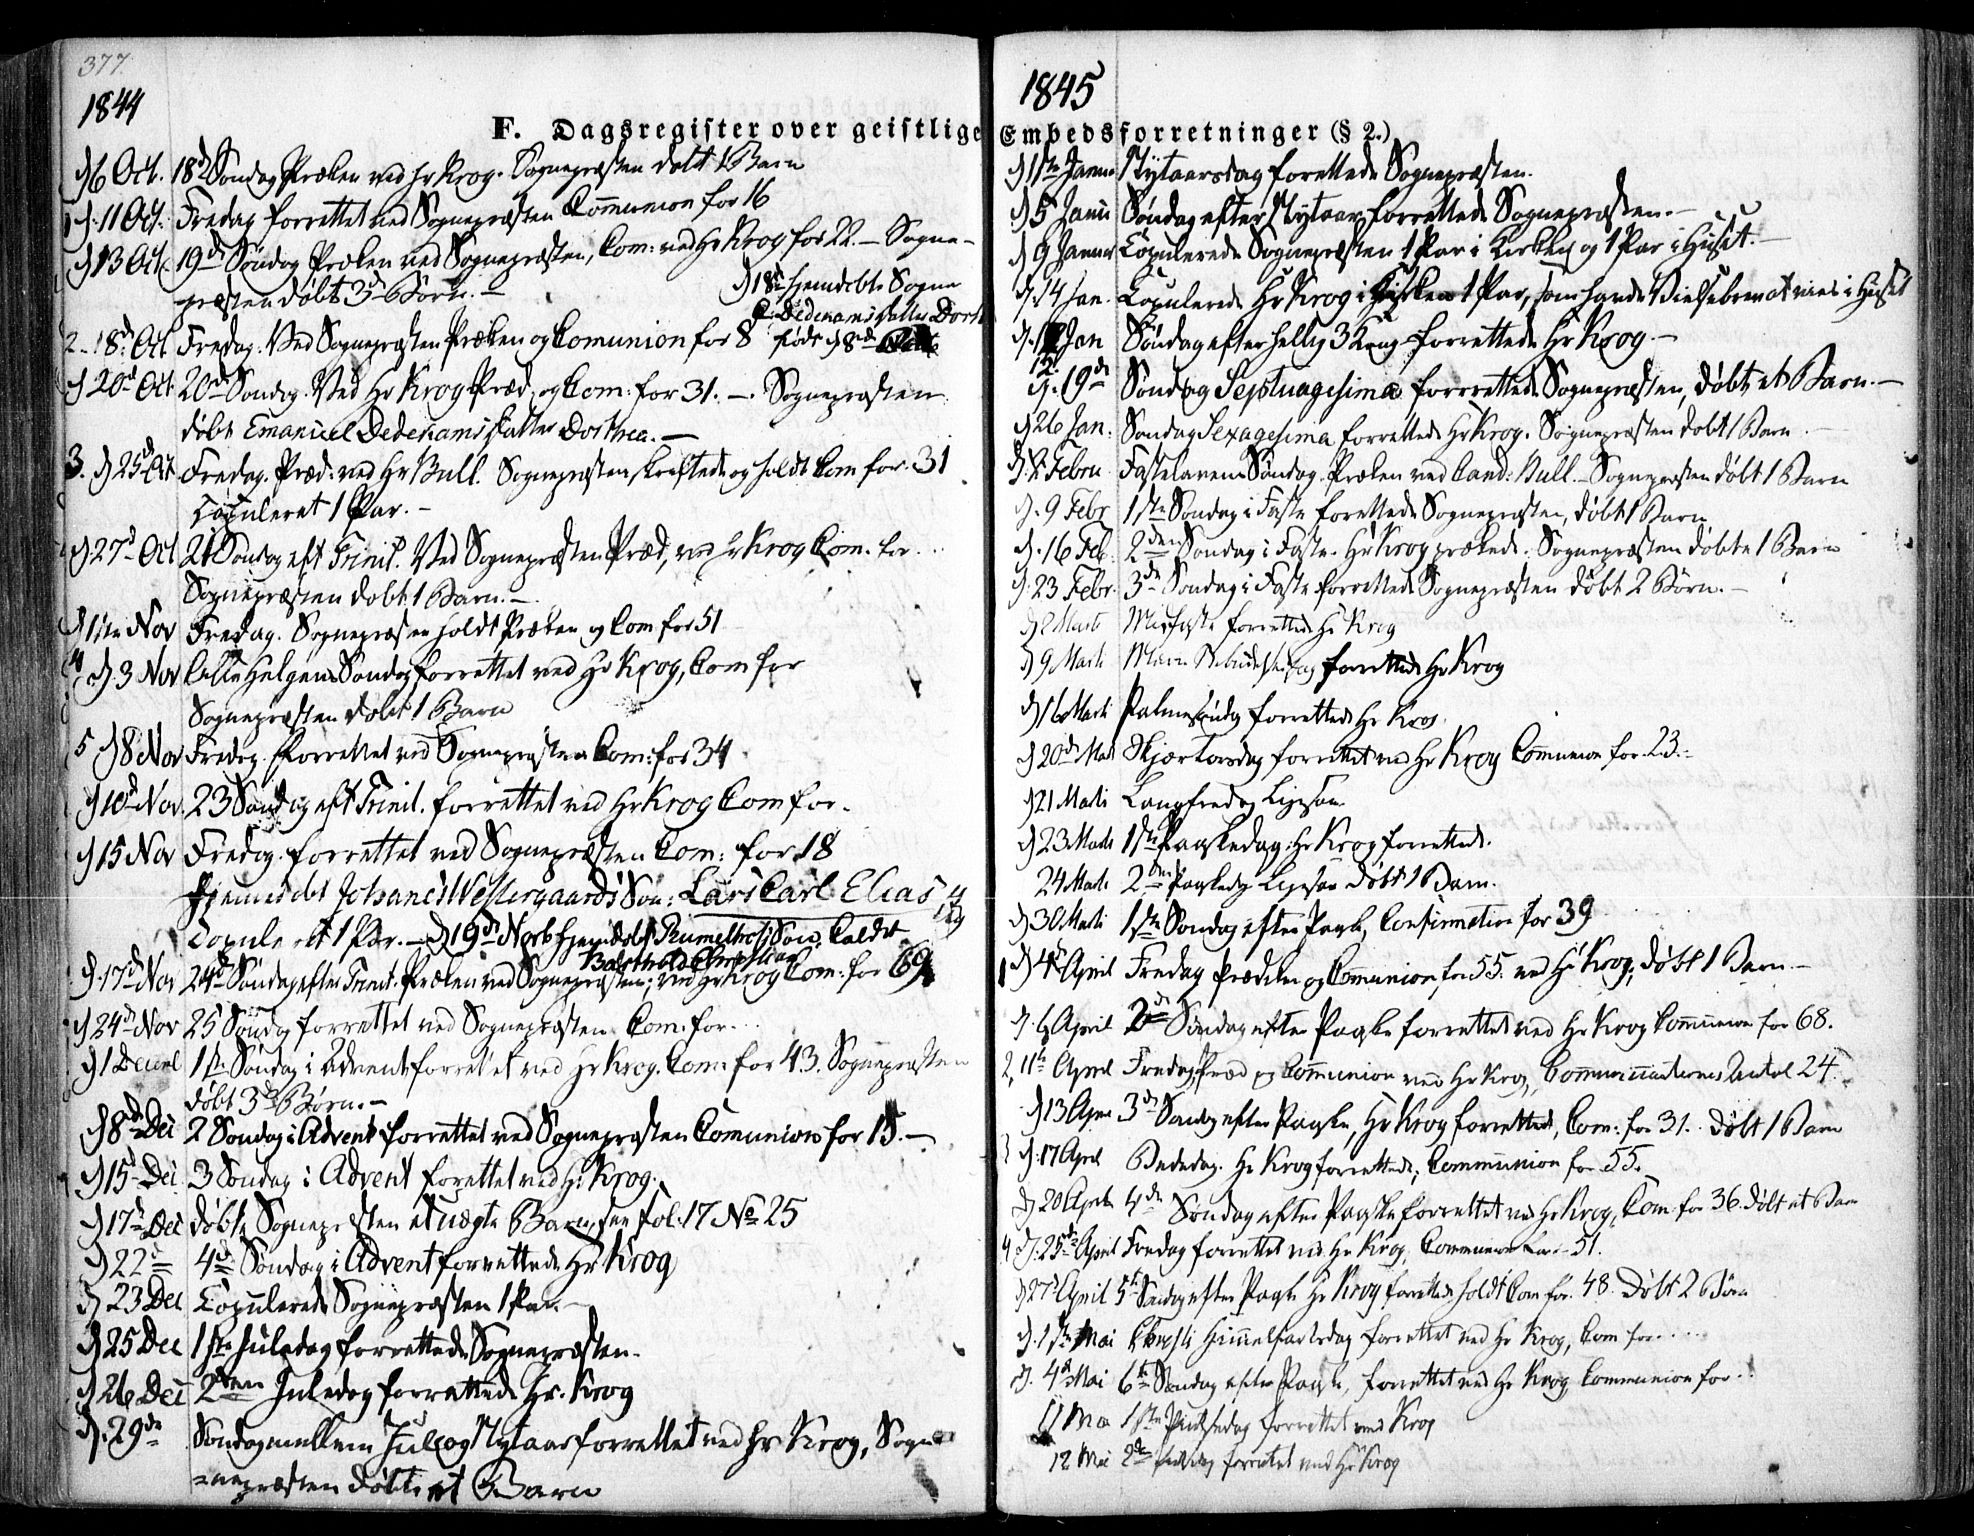 377.
1844
F. Dagsregister over geistlige
d 6 Oct. 18d Søndag Præken ved Hr Krog. Sognepræsten døbt 1 Barn
1 d. 11 Oct. Fredag forrettet ved Sognepræsten Communion for 16
d 13 Oct. 19d Søndag Præken ved Sognepræsten, Com: ved Hr Krog for 22. – Sogne-
præsten døbt 3 Børn. –
d 18d hjemdøbte Sogne
Dedekams Datter Dorth
født d 8d
2 - 18d Oct Fredag. Ved Sognepræsten Præken og Comunion for 8
d 20d Oct 20d Søndag. Ved Hr Krog Præd. og Com: for 31. –. Sognepræsten
døbt Emanuel Dedekams Datter Dorthea. –
3. d 25d Oct Fredag. Præd: ved Hr Bull. Sognepræsten skriftede og holdt Com for 31
Copuleret 1 Par. –
d 27d Oct 21 Søndag eft Trinit. Ved Sognepræsten Præd, ved Hr Krog Com. for ...
Sognepræsten døbt 1 Barn. –
d 1ste Nov Fredag. Sognepræsten holdt Præken og Com for 51
4 d. 3 Nov Alle Helgens Søndag forrettet ved Hr Krog, Com for
Sognepræsten døbt 1 Barn
5 d 8 Nov Fredag. forrettet ved Sognepræsten Com: for 34
d 10d Nov. 23 Søndag eft Trinit. forrettet ved Hr Krog Com for.
d 15 Nov Fredag. forrettet ved Sognepræsten Com: for 18
Hjemmedøbt Johanes Westergaards Søn: Lars Carl Elias
Copuleret 1 Par. – d 19d Novb hjemdøbt Søn, kaldet
Christian
d. 17d Nov 24d Søndag efter Trinit. Præken ved Sognepræsten; ved Hr Krog Com: for 69
d 24d Nov 25 Søndag forrettet ved Sognepræsten. Com. for ...
d 1 Decembr 1ste Søndag i Advent forrettet ved Hr Krog. Com: for 43. Sognepræsten
døbt 3 Børn. –
d 8d Dec 2 Søndag i Advent forrettet ved Sognepræsten Comunion for 15. –
d 15 Dec 3 Søndag i Advent forettet ved Hr Krog.
d 17d Dec døbte Sognepræsten et uægte Barn, see fol: 17 No 25
d 22d 4d Søndag i Advent forrettede Hr Krog
d 23 Dec Copulerede Sognepræsten 1 Par. –
d 25 Dec 1ste Juledag forrettede Sognepræsten.
d 26 Dec 2den Juledag forrettede Hr. Krog
d. 29de Søndag mellem Jul og Nytaar forrettet ved Hr Krog, Sog-
nepræsten døbte et Barn
1845
Embedsforretninger (§ 2.)
d 1ste Janua Nytaarsdag forettede Sognepræsten.
d 5 Janu Søndag efter Nytaar forrettede Sognepræsten. –
d 9 Januar Copulerede Sognepræsten 1 Par i Kirken og 1 Par i Huset. –
d. 14 Jan. Copulerede Hr Krog i Kirken 1 Par, som havde Vielsebrev at vies i Huset
d. 12 Jan Søndag efter hellig 3 Kong forrettede Hr Krog –
d. 19de Søndag Septuagesima forrettede Sognepræsten, døbt et Barn. –
d 26 Jan. Søndag Sexagesima forrettede Hr Krog. Sognepræsten døbt 1 Barn
d. 2 Febru Fastelavens Søndag. Præken ved Cand: Bull. – Sognepræsten døbt 1 Barn
d. 9 Febr 1ste Søndag i Faste forettede Sognepræsten, døbt 1 Barn
d. 16 Feb. 2den Søndag i Faste. Hr Krog prækede. Sognepræsten døbte 1 Barn
d. 23 Febr. 3de Søndag i Faste forrettede Sognepræsten døbt 2 Børn. –
d 2 Marti Midfaste forrettede Hr Krog
d 9 Marti Mariæ Bebudelsesdag forrettede Hr Krog
d 16 Marti Palmesøndag forrettede Hr Krog.
d 20de Mart Skjærtorsdag forrettet ved Hr Krog Communion for 23. –
d 21 Marti Langfredag Ligesaa
d 23 Marti 1ste Paaskedag Hr Krog forrettede.
24 Marti 2den Paaskedag Ligesaa døbt 1 Barn.
d 30 Marti 1ste Søndag efter Paask, Confirmation for 39
1 d 4d April Fredag Prædiken og Comunion for 55. ved Hr Krog; døbt 1 Barn. –
d. 6 April 2de Søndag efter Paaske forrettet ved Hr Krog Communion for 68.
2, 11te April Fredag Præd og Communion ved Hr Krog, Communicanternes Antal 24.
d 13 Apri 3d Søndag efter Paaske, Hr Krog forrettede, Com: for 31. døbt 1 Barn
3 d. 17 April Bededag. Hr Krog forrettede; Communion for 55.
d 20 April 4de Søndag efter Paaske forrettet ved Hr Krog, Com for 36. døbt et Barn
4 d. 25de April Fredag forrettet ved Hr Krog, Communion for 51.
d 27d April 5te Søndag efter Paaske Hr Krog forrettede holdt Com for. 48. døbt 2 Børn
d. 1ste Mai Christi Himmelfartsdag forrettet ved Hr Krog, Com for ....
d. 4d Mai 6te Søndag efter Paaske, forrettet ved Hr Krog Communion for ..
11 Mai 1ste Pintsedag forrettet ved Krog
12 Mai 2de forrettet ved Hr Krog